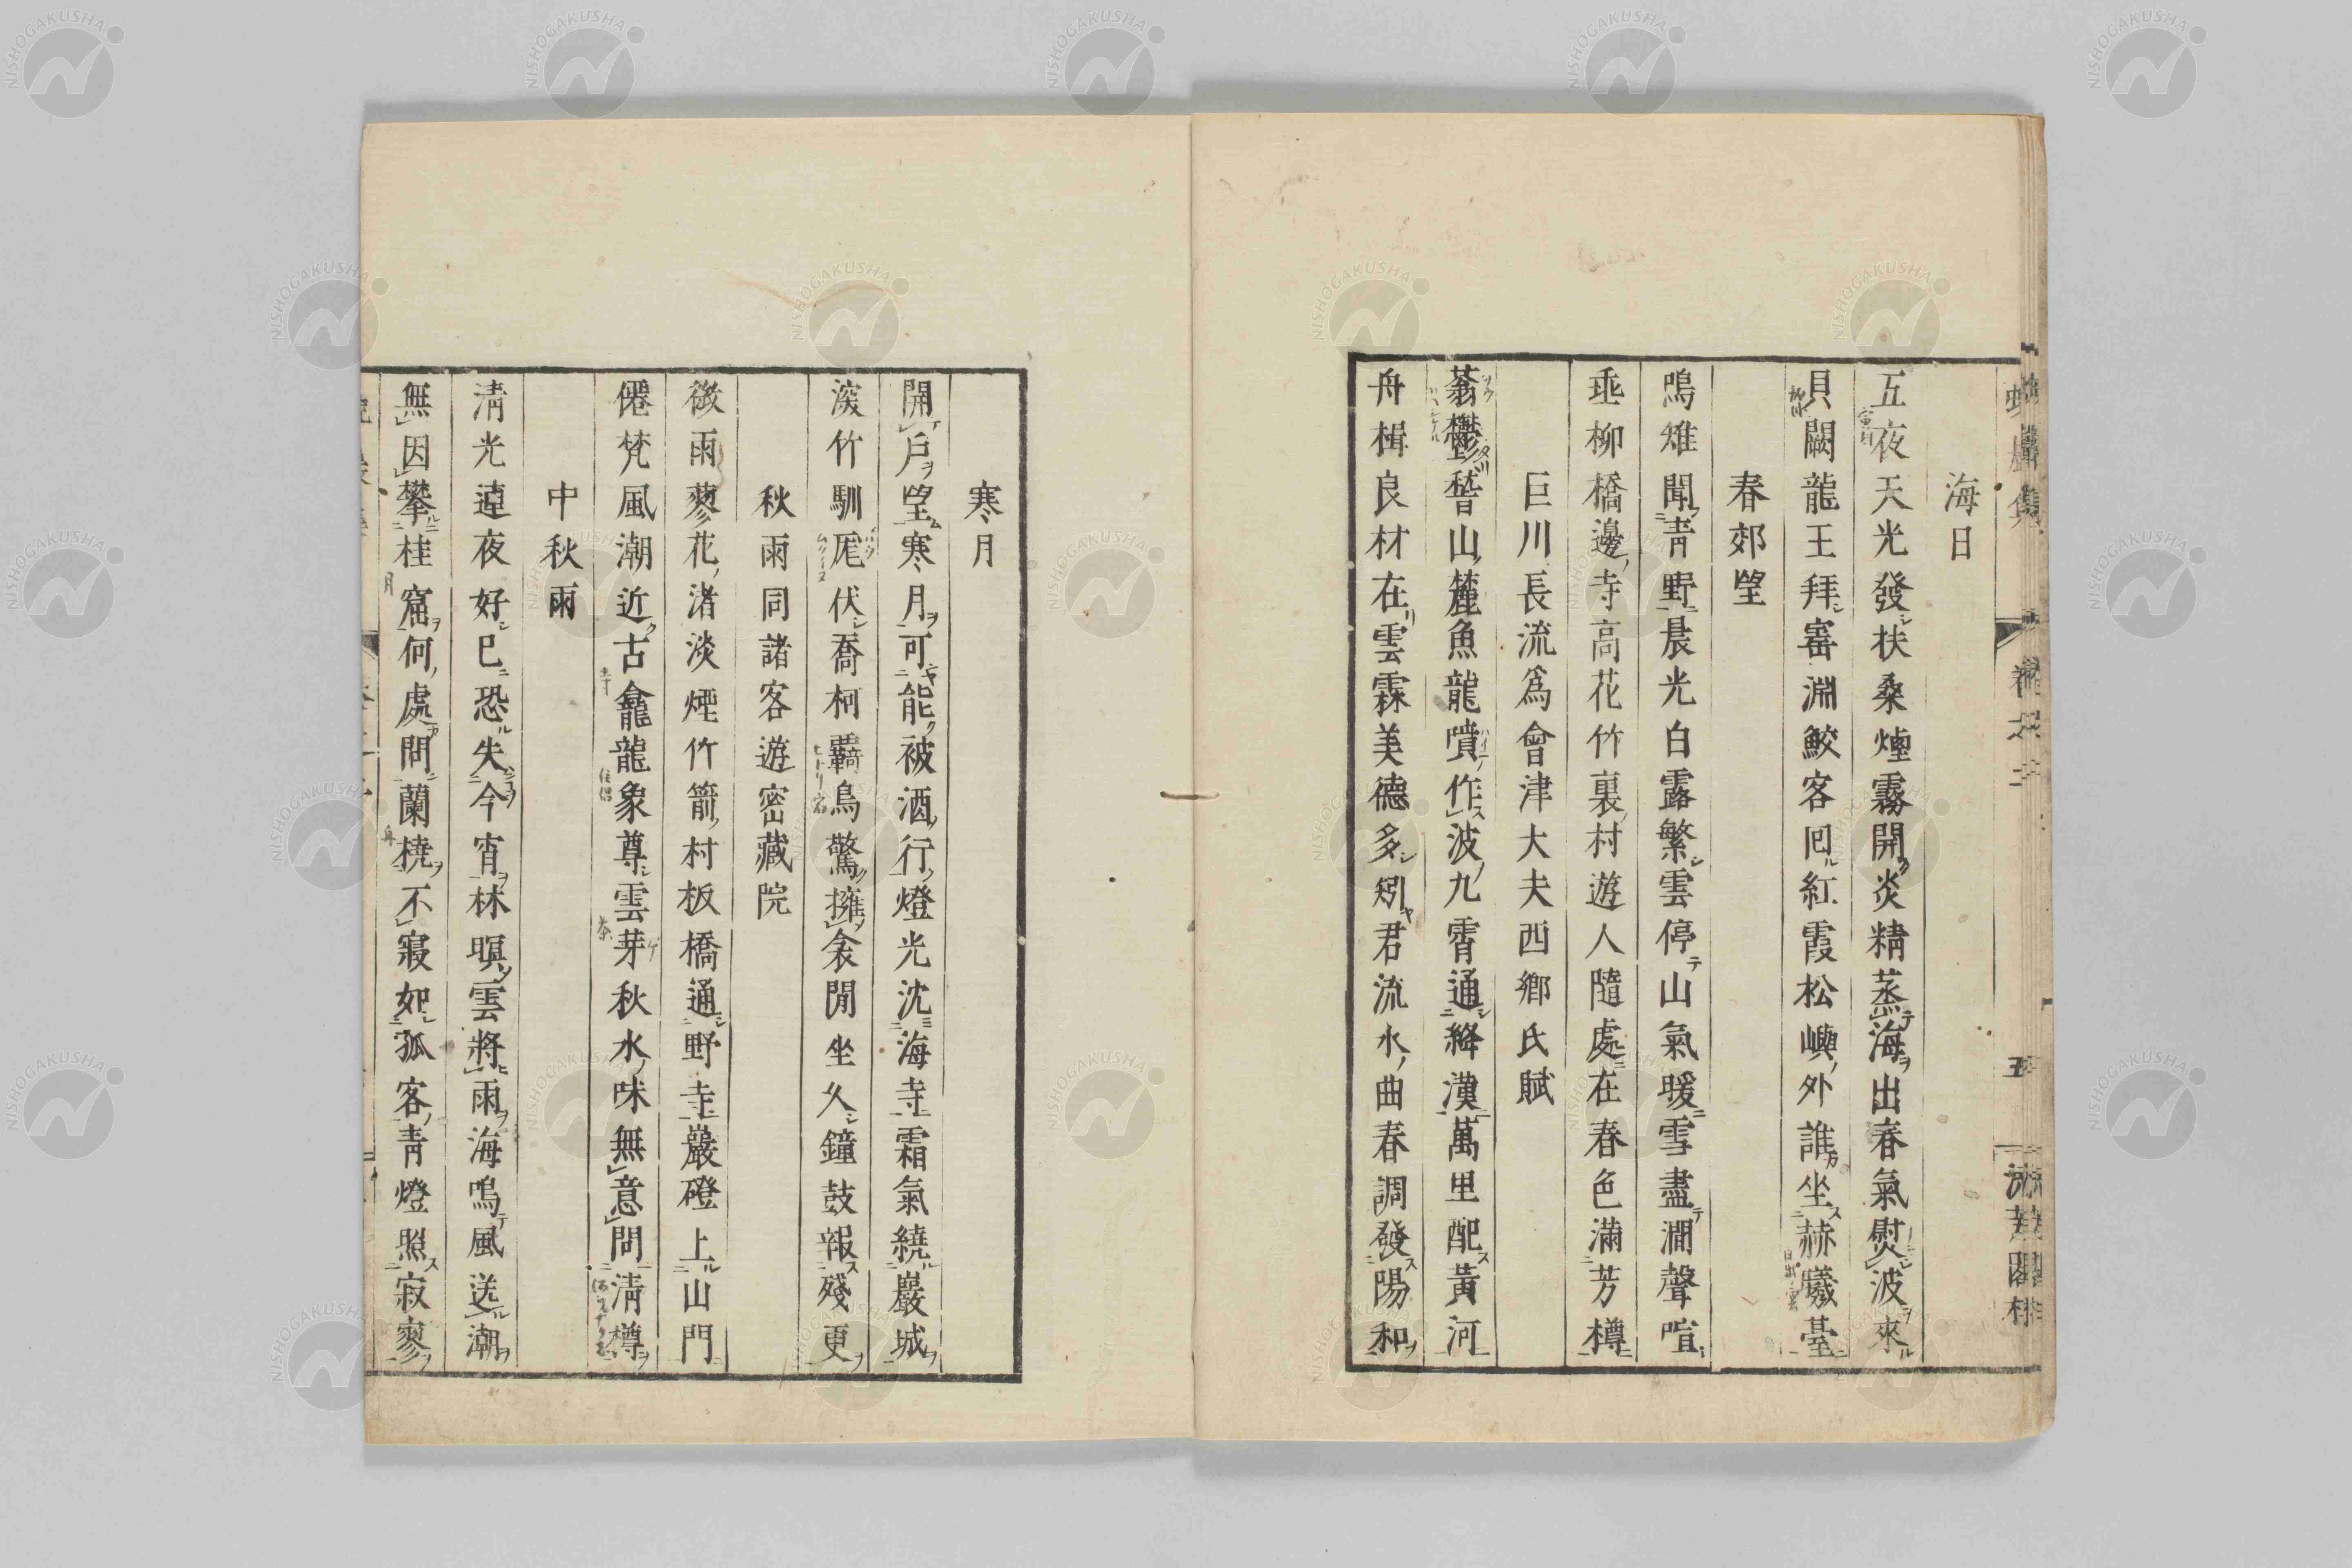 海日
五夜天光發扶桑煙霧開炎精蒸海出春氣熨波來
貝闕龍王拜窰淵鮫客回紅霞松嶼外誰坐赫曦臺
春郊望
鳴雉聞靑野晨光白露繁雲停山氣暖雪盡澗聲喧
垂柳橋邊寺高花竹裏村遊人隨處在春色滿芳樽
巨川長流爲會津大夫西鄉氏賦
蓊鬱䃜山麓魚龍噴作波九霄通絳漢萬里配黃河
舟楫良材在雲霖美德多矧君流水曲春調發陽和
寒月
開戶望寒月可能被酒行燈光沈海寺霜氣繞巖城
深竹馴尨伏喬柯羇鳥驚擁衾閒坐久鐘鼓報殘更
秋雨同諸客遊密藏院
微雨蓼花渚淡煙竹箭村板橋通野寺巖磴上山門
僊梵風潮近古龕龍象尊雲芽秋水味無意問淸樽
中秋雨
淸光遠夜好已恐失今宵林暝雲將雨海鳴風送潮
無因攀桂窟何處問蘭橈不寢如孤客靑燈照寂寥
NISHOGAKUSHA